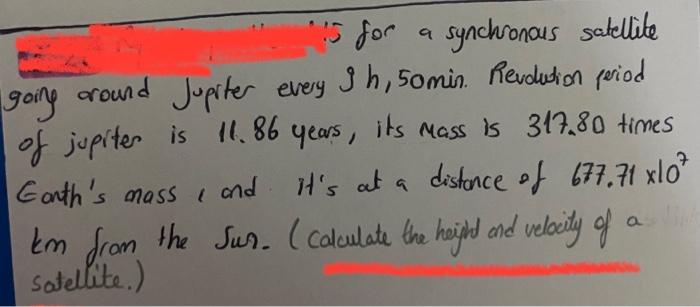 for a synchronous satellite
going around Jupiter every 9 h, 50min. Revolution period
of jupiter is 11.86 years, its Mass is 317.80 times
Earth's mass, and it's at a distance of 677.71 x10⁷
km from the Sun. (Calculate the height and velocity of a
satellite.)